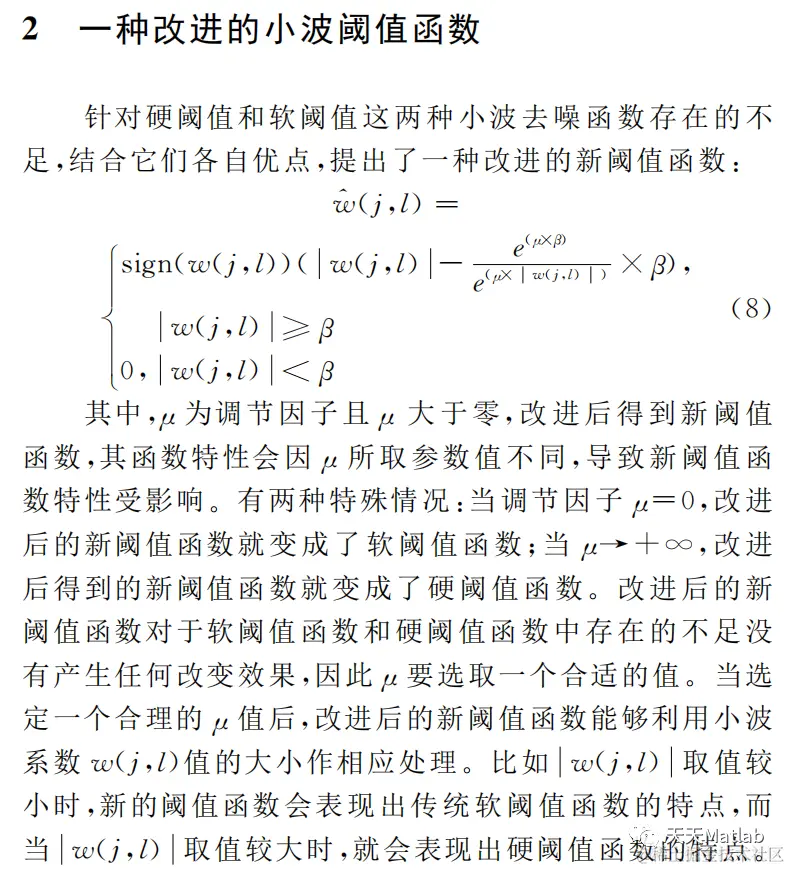 2 一种改进的小波阈值函数
针对硬阈值和软阈值这两种小波去噪函数存在的不
足,结合它们各自优点,提出了一种改进的新阈值函数:
ŵ(j,l)=
{sign(w(j,l))(|w(j,l)|−e^(μ×β)/e^(μ×|w(j,l)|)×β),
|w(j,l)|⩾β
0,|w(j,l)|<β
(8)
其中,μ为调节因子且μ大于零,改进后得到新阈值
函数,其函数特性会因μ所取参数值不同,导致新阈值函
数特性受影响。有两种特殊情况:当调节因子μ=0,改进
后的新阈值函数就变成了软阈值函数;当μ→+∞,改进
后得到的新阈值函数就变成了硬阈值函数。改进后的新
阈值函数对于软阈值函数和硬阈值函数中存在的不足没
有产生任何改变效果,因此μ要选取一个合适的值。当选
定一个合理的μ值后,改进后的新阈值函数能够利用小波
系数w(j,l)值的大小作相应处理。比如|w(j,l)|取值较
小时,新的阈值函数会表现出传统软阈值函数的特点,而
当|w(j,l)|取值较大时,就会表现出硬阈值函数的特点。
天天Matlab
@稀土掘金技术社区